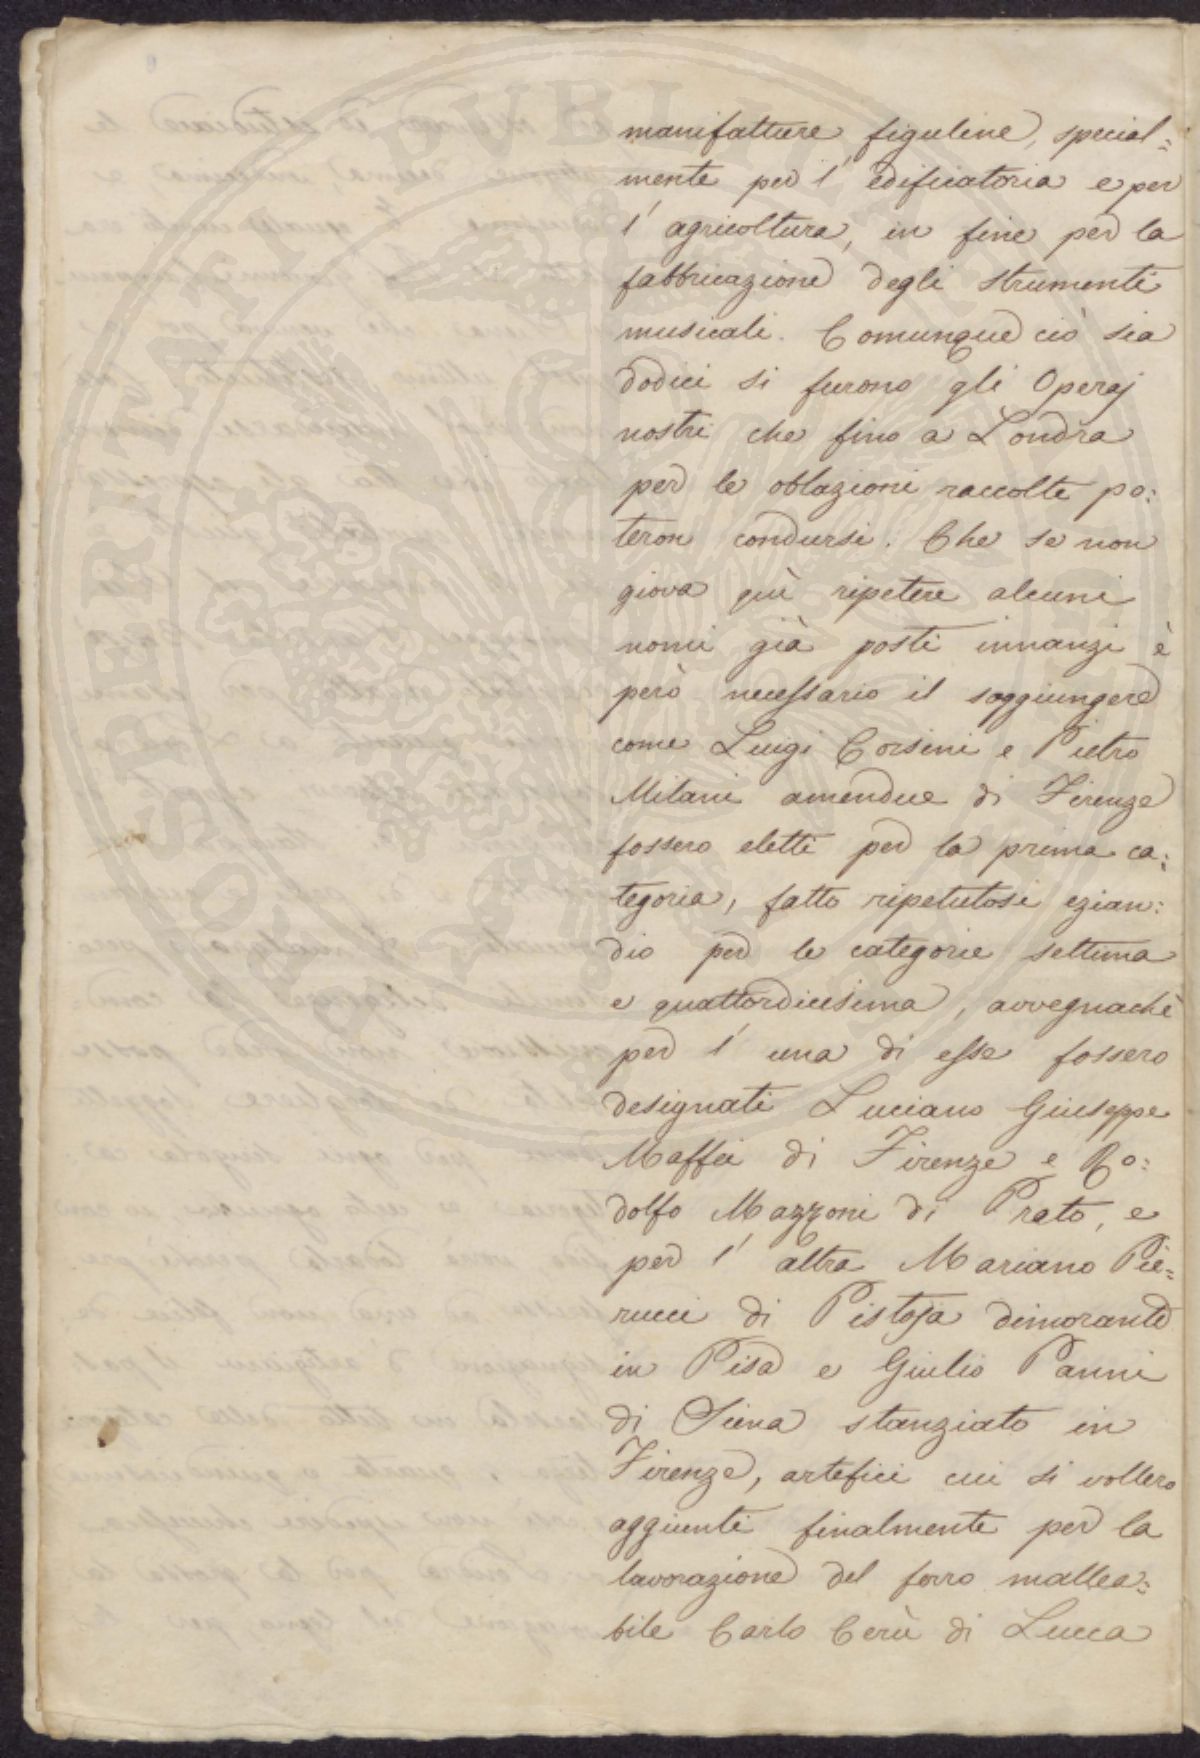 manifatture figuline, special=
mente per l' edificatoria e per
l' agricoltura, in fine per la
fabbricazione degli strumenti
musicali. Comunque ciò sia
dodici si furono gli Operaj
nostri che fino a Londra
per le oblazioni raccolte po:
teron condursi. Che se non
giova quì ripetere alcuni
nomi già posti innanzi è
però necessario il soggiungere
come Luigi Corsini e Pietro
Milani amendue di Firenze
fossero eletti per la prima ca:
tegoria, fatto ripetutosi ezian:
dio per le categorie settima
e quattordicesima, avvegnachè
per l' una di esse fossero
designati Luciano Giuseppe
Maffei di Firenze e Ro:
dolfo Mazzoni di Prato, e
per l' altra Mariano Pie=
rucci di Pistoja dimorante
in Pisa e Giulio Panni
di Siena stanziato in
Firenze, artefici cui si vollero
aggiunti finalmente per la
lavorazione del ferro mallea=
bile Carlo Cerù di Lucca